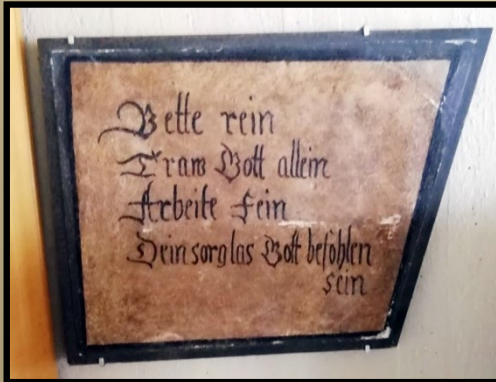 Bette rein
Traw Gott allein
Arbeite fein
Dein sorg las Gott befohlen
sein